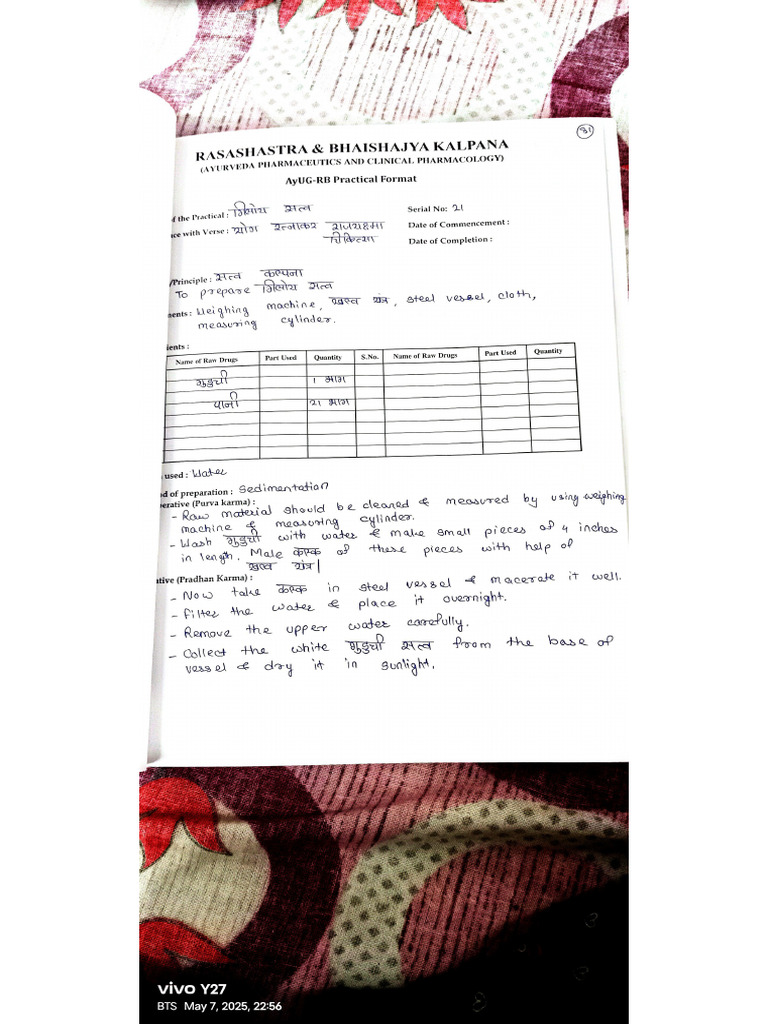 31
RASASHASTRA & BHAISHAJYA KALPANA
(AYURVEDA PHARMACEUTICS AND CLINICAL PHARMACOLOGY)
AyUG-RB Practical Format
of the Practical : गिलोय सत्व
Serial No: 21
ce with Verse : योग रत्नाकर राजयक्ष्मा
Date of Commencement :
चिकित्सा
Date of Completion :
/Principle : सत्व कल्पना
To prepare गिलोय सत्व
ments : Weighing machine, खल्व यंत्र, steel vessel, cloth,
measuring cylinder.
ients :
Name of Raw Drugs Part Used Quantity S.No. Name of Raw Drugs Part Used Quantity
गुडुची 1 भाग
पानी 21 भाग
used : Water
od of preparation : Sedimentation
erative (Purva karma) :
- Raw material should be cleaned & measured by using weighing
machine & measuring cylinder.
- Wash गुडुची with water & make small pieces of 4 inches
in length. Male कल्क of these pieces with help of
खल्व यंत्र|
ative (Pradhan Karma) :
- Now take कल्क in steel vessel & macerate it well.
- Filter the water & place it overnight.
- Remove the upper water carefully.
- Collect the white गुडुची सत्व from the base of
vessel & dry it in sunlight.
vivo Y27
BTS May 7, 2025, 22:56